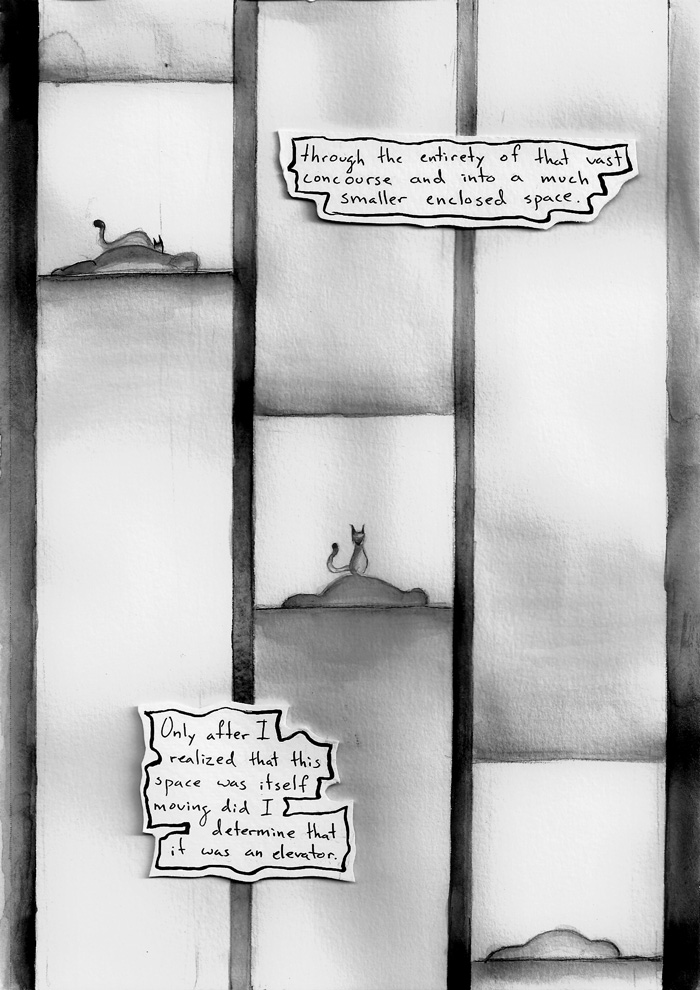 through the entirety of that vast
concourse and into a much
smaller enclosed space.
Only after I
realized that this
space was itself
moving did I
determine that
it was an elevator.